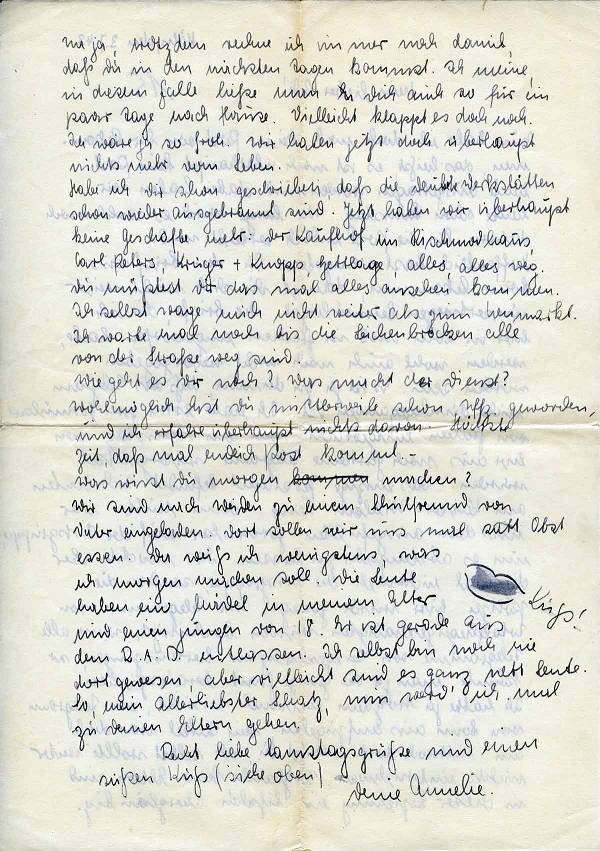 na ja, trotzdem rechne ich immer noch damit,
daß Du in den nächsten Tagen kommst. Ich meine,
in diesem Falle ließe man Dich auch so für ein
paar Tage nach Hause. Vielleicht klappt es doch noch.
Ich wäre ja so froh. Wir haben jetzt doch überhaupt
nichts mehr vom Leben.
Habe ich Dir schon geschrieben, daß die Deutsch Werkstätten
schon wieder ausgebrannt sind. Jetzt haben wir überhaupt
keine Geschäfte mehr: der Kaufhof im Rischmodhaus,
Carl Peters, Krüger + Knopp, Hettlage alles alles weg.
Du müßtest Dir das mal alles ansehen kommen.
Ich selbst wage mich nicht weiter als zum Neumarkt.
Ich warte mal noch bis die Leichenbrocken alle
von der Straße weg sind.
Wie geht es Dir noch? Was macht der Dienst?
Womöglich bist Du mittlerweile schon Uffz. geworden,
und ich erfahre überhaupt nichts davon. Höchste
Zeit, daß mal endlich Post kommt. –
Was wirst Du morgen kommen machen?
Wir sind nach Weiden zu einem Schulfreund von
Vater eingeladen. Dort sollen wir uns mal satt Obst
essen. Da weiß ich wenigstens, was
ich morgen machen soll. Die Leute
haben ein Mädel in meinem Alter
Kuss!
und einen Jungen von 18. Er ist gerade aus
dem R.A.D. entlassen. Ich selbst bin noch nie
dort gewesen, aber vielleicht sind es ganz nette Leute.
So mein allerliebster Schatz, nun werd' ich mal
zu Deinen Eltern gehen.
Recht liebe Samstagsgrüße und einen
süßen Kuß (siehe oben)
Deine Annelie.